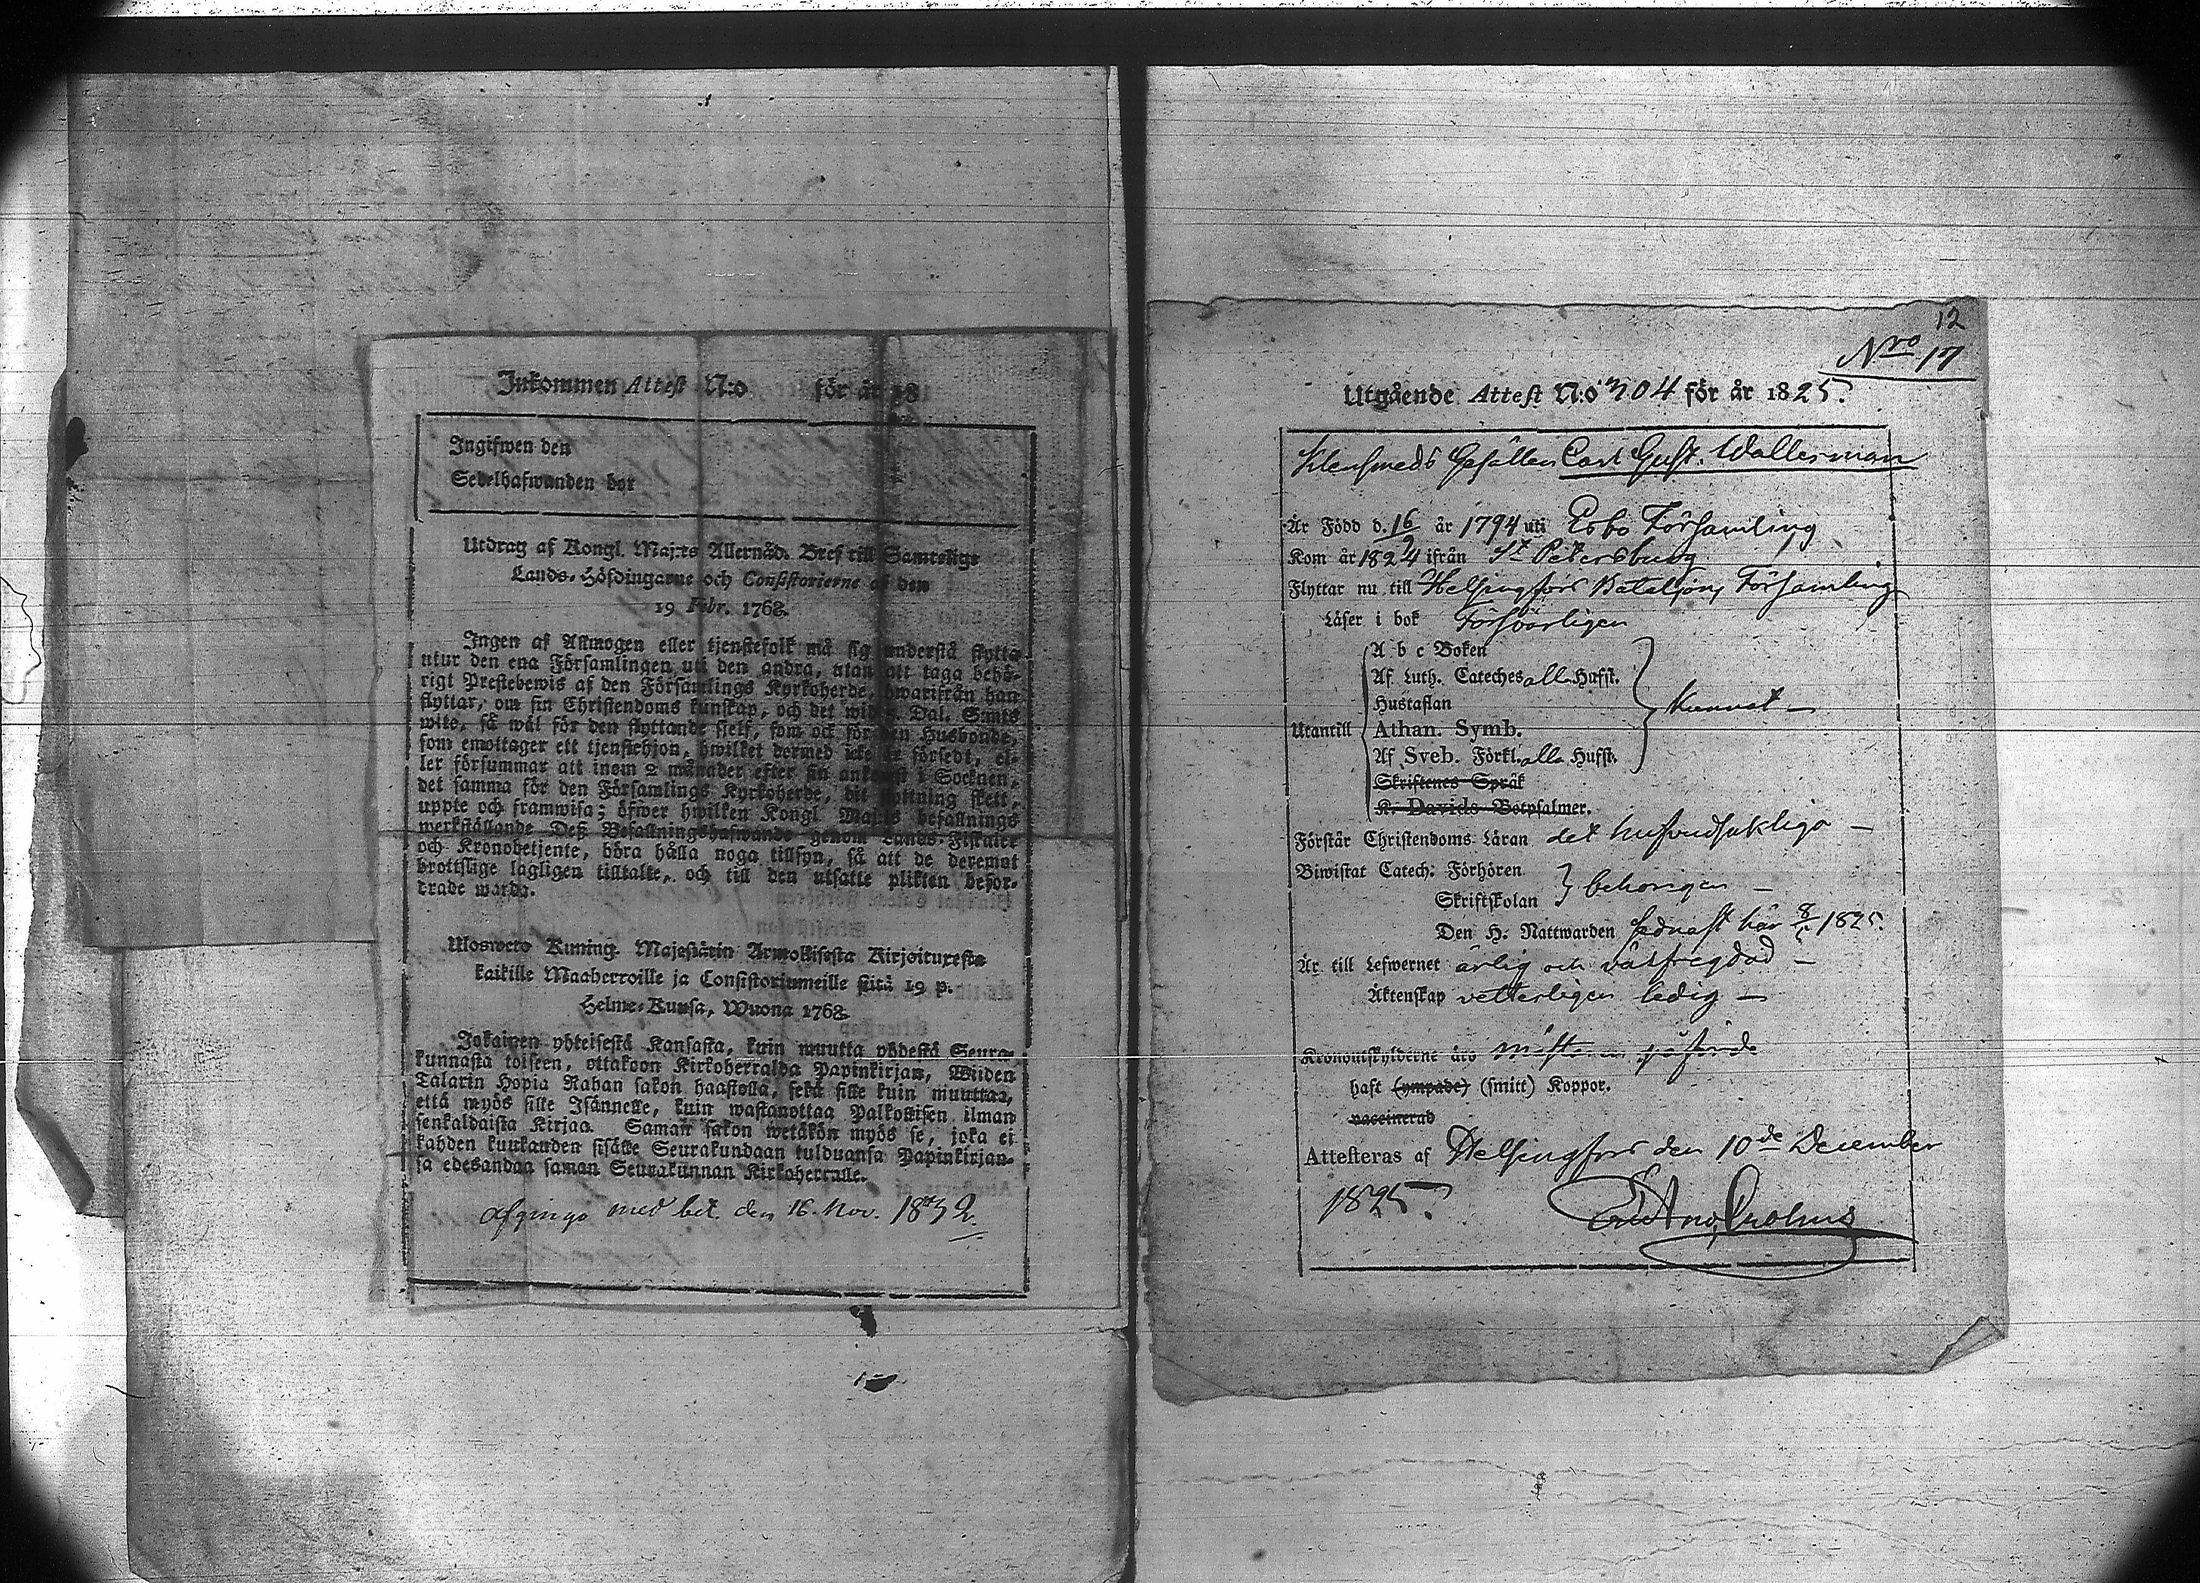 Inkommen Attest N:o för år 18
Ingifwen den
Sedelhafwanden bor
Utdrag af Kongl. Maj:ts Allernåd. Bref till Samtelige
Lands-Höfdingarne och Consistorierne af den
19 Febr. 1768.
Ingen af Allmogen eller tjenstefolk må sig understå flytta
utur den ena Församlingen uti den andra, utan att taga behö-
rigt Prestebewis af den Församlings Kyrkoherde, hwarifrån han
flyttar, om sin Christendoms kunskap, och det wid 5. Dal. S:mts
wite, så wäl för den flyttande sjelf, som ock för den Husbonde,
som emottager ett tjenstehjon, hwilket dermed icke är försedt, el-
ler försummar att inom 2 månader efter sin ankomst i Socknen,
det samma för den Församlings Kyrkoherde, dit flyttning skett,
uppte och framwisa; öfwer hwilken Kongl. Maj:ts befallnings
werkställande Deß Befallningshafwande genom Lands-Fiskaler
och Kronobetjente, böra hålla noga tillsyn, så att de deremot
brottslige lagligen tilltalte, och till den utsatte plikten befor-
drade warda.
Ulosweto Kuning. Majestätin Armollisesta Kirjoituxesta
kaikille Maaherroille ja Consistoriumeille siitä 19 p.
Helme-Kuusa, Wuona 1768.
Jokainen yhteisestä Kansasta, kuin muutta yhdestä Seura-
kunnasta toiseen, ottakoon Kirkoherralda Papinkirjan, Wiiden
Talarin Hopia Rahan sakon haastolla, sekä sille kuin muuttaa,
että myös sille Isännelle, kuin wastanottaa Palkollisen ilman
senkaldaista Kirjaa. Saman sakon wetäkön myös se, joka ei
kahden kuukauden sisälle Seurakundaan tulduansa Papinkirjan-
sa edesandaa saman Seurakunnan Kirkoherralle.
afgingo med bet. den 16. Nov. 1832.
12
Nro 17
Utgående Attest N:o 304 för år 1825.
Klensmeds Gesällen Carl Gust. Wallerman
Är Född d. 16/9 år 1794 uti Esbo Församling
Kom år 1824 ifrån St Petersburg
Flyttar nu till Helsingfors Bataljons Församling
Läser i bok försvarligen
A b c Boken
Af Luth. Cateches alla Hufst.
Hustaflan
Utantill Athan. Symb. Kunnat
Af Sveb. Förkl. alla Hufst.
Skriftenes Språk
K. Davids Botpsalmer.
Förstår Christendoms Läran det hufvudsakliga
Biwistat Catech. Förhören
behörigen
Skriftskolan
Den H. Nattwarden sednast här 1825.
Är till Lefwernet ärlig och
Äktenskap vetterligen ledig
Kronoutskylderne äro
haft (ympade) (smitt) Koppor.
vaccinerad
Attesteras af Helsingfors den 10de December
1825.
Crohns